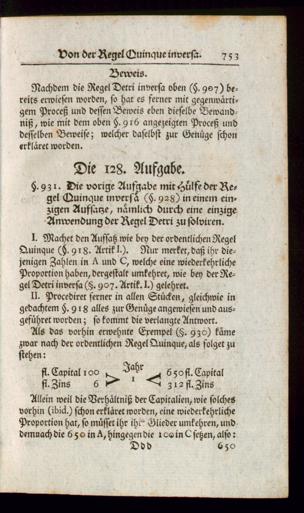 Von der Regel Quinque inversa. 753
Beweis.
Nachdem die Regel Detri inversa oben (§. 907) be-
reits erwiesen worden, so hat es ferner mit gegenwärti-
gem Proceß und dessen Beweis eben dieselbe Bewand-
niß, wie mit dem oben §. 916 angezeigten Proceß und
desselben Beweise; welcher daselbst zur Genüge schon
erkläret worden.
Die 128. Aufgabe.
§. 931. Die vorige Aufgabe mit Hülfe der Re-
gel Quinque inversa (§. 928) in einem ein-
zigen Aufsatze, nämlich durch eine einzige
Anwendung der Regel Detri zu solviren.
I. Machet den Aufsatz wie bey der ordentlichen Regel
Quinque (§. 918. Artik. I.). Nur merket, daß ihr die-
jenigen Zahlen in A und C, welche eine wiederkehrliche
Proportion haben, dergestalt umkehret, wie bey der Re-
gel Detri inversa (§. 907. Artik. I.) gelehret.
II. Procediret ferner in allen Stücken, gleichwie in
gedachtem §. 918 alles zur Genüge angewiesen und aus-
geführet worden; so kommt die verlangte Antwort.
Als das vorhin erwehnte Exempel (§. 930) käme
zwar nach der ordentlichen Regel Quinque, als folget zu
stehen:
Jahr
fl. Capital 100 650 fl. Capital
1
fl. Zins 6 312 fl. Zins
Allein weil die Verhältniß der Capitalien, wie solches
vorhin (ibid.) schon erkläret worden, eine wiederkehrliche
Proportion hat, so müsset ihr ihre Glieder umkehren, und
demnach die 650 in A, hingegen die 100 in C setzen, also:
Ddd 650